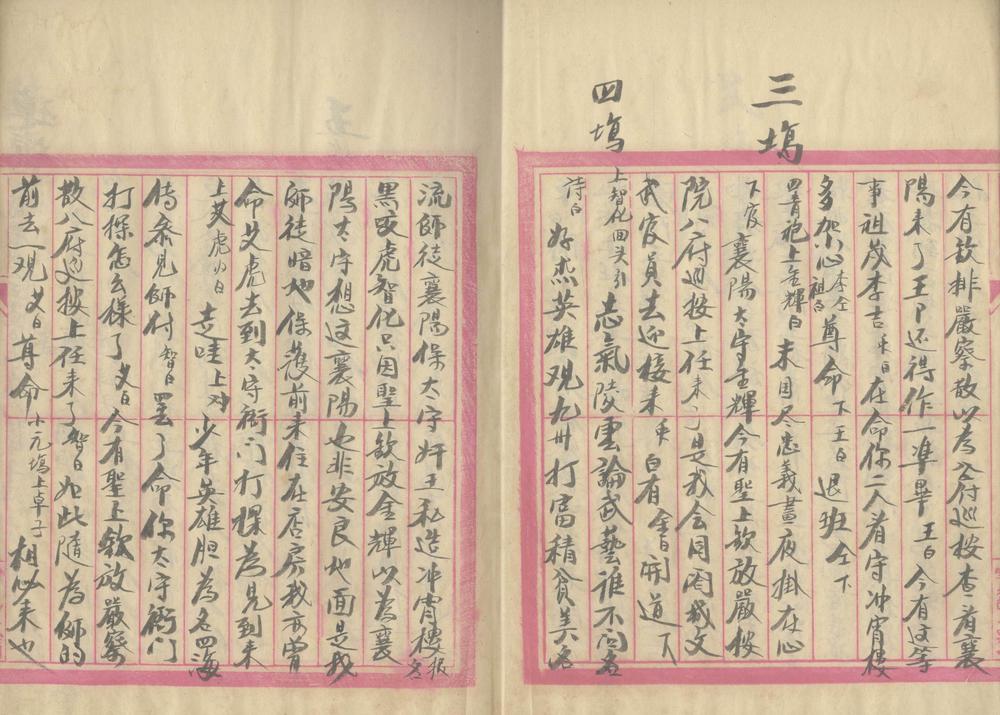 今有欽排嚴察散以為八府巡按查看襄
陽來了王卩还得作一準畢 王白 今有这等
事祖茂李吉 禾白 在命你二人看守冲宵樓
多加小心 李全祖白 尊命 下 王白 退班 仝下
三塲
四青袍上金輝白 未因尽忠義晝夜掛在心
下官 襄陽太守金輝今有聖上欽放嚴按
院八府巡按上任來了是我会同閤城文
武官員去迎接來 手白有 金白 開道 下
四塲
上智化回头引 志氣陵雲論武藝谁不闻名
詩白 好杰英雄观九州打富積貧美名
流師徒襄陽保太守奸王私造冲宵樓 报名
黑妖虎智化只因聖上欽放金輝以為襄
陽太守想这襄陽也非安良地面是我
師徒暗地保護前來住在店房我不曾
命艾虎去到太守衙门打探為見到來
上艾虎小白 走哇 上对 少年英雄胆為名四海
待參見師付 智白 罢了命你太守衙门
打探怎么樣了 艾白 今有聖上欽放嚴察
散八府巡按上任来了 智白 如此隨為師的
前去一观 艾白 尊命 小元塲上卓子 相必來也